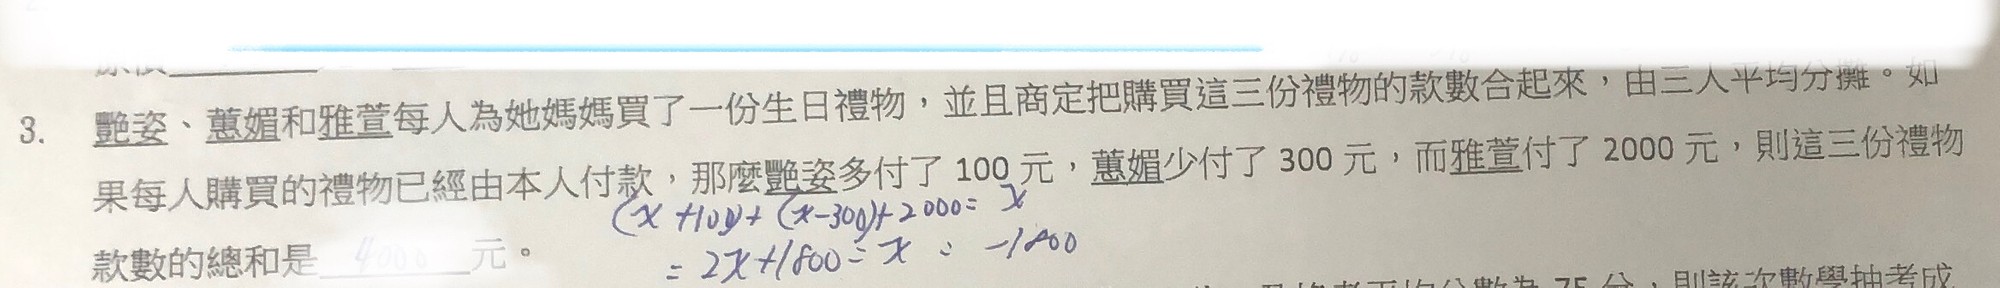 3. 艷姿、蕙媚和雅萱每人為她媽媽買了一份生日禮物，並且商定把購買這三份禮物的款數合起來，由三人平均分攤。如
果每人購買的禮物已經由本人付款，那麼艷姿多付了 100 元，蕙媚少付了 300 元，而雅萱付了 2000 元，則這三份禮物
(x+100)+(x-300)+2000=x
款數的總和是 4000 元。
=2x+1800=x = -1800
75 分，則該次數學抽考成